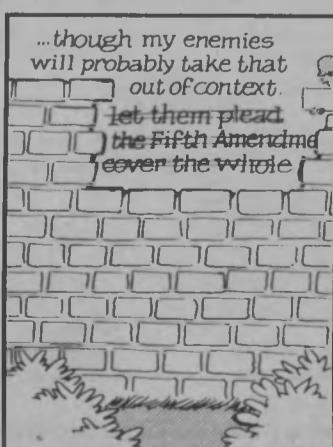 ...though my enemies
will probably take that
out of context.
let them plead
the Fifth Amendme
cover the whole